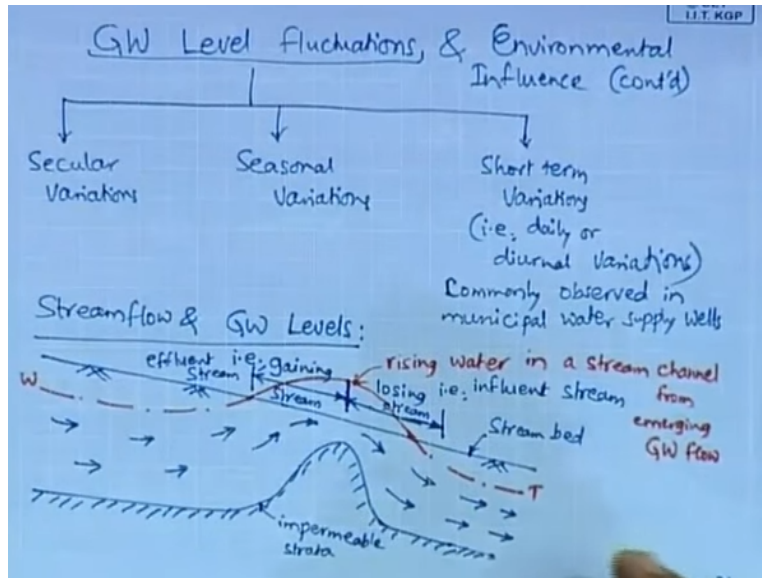 I.I.T. KGP
GW Level fluctuations, & Environmental
Influence (cont'd)
Secular
Variations
Seasonal
Variations
Short term
Variations
(i.e., daily or
diurnal variations)
Commonly observed in
municipal water supply wells
Streamflow & GW Levels:
effluent i.e; gaining
Stream
stream
rising water in a stream channel
from
emerging
GW flow
losing i.e; influent stream
stream
W
Stream bed
T
impermeable
strata